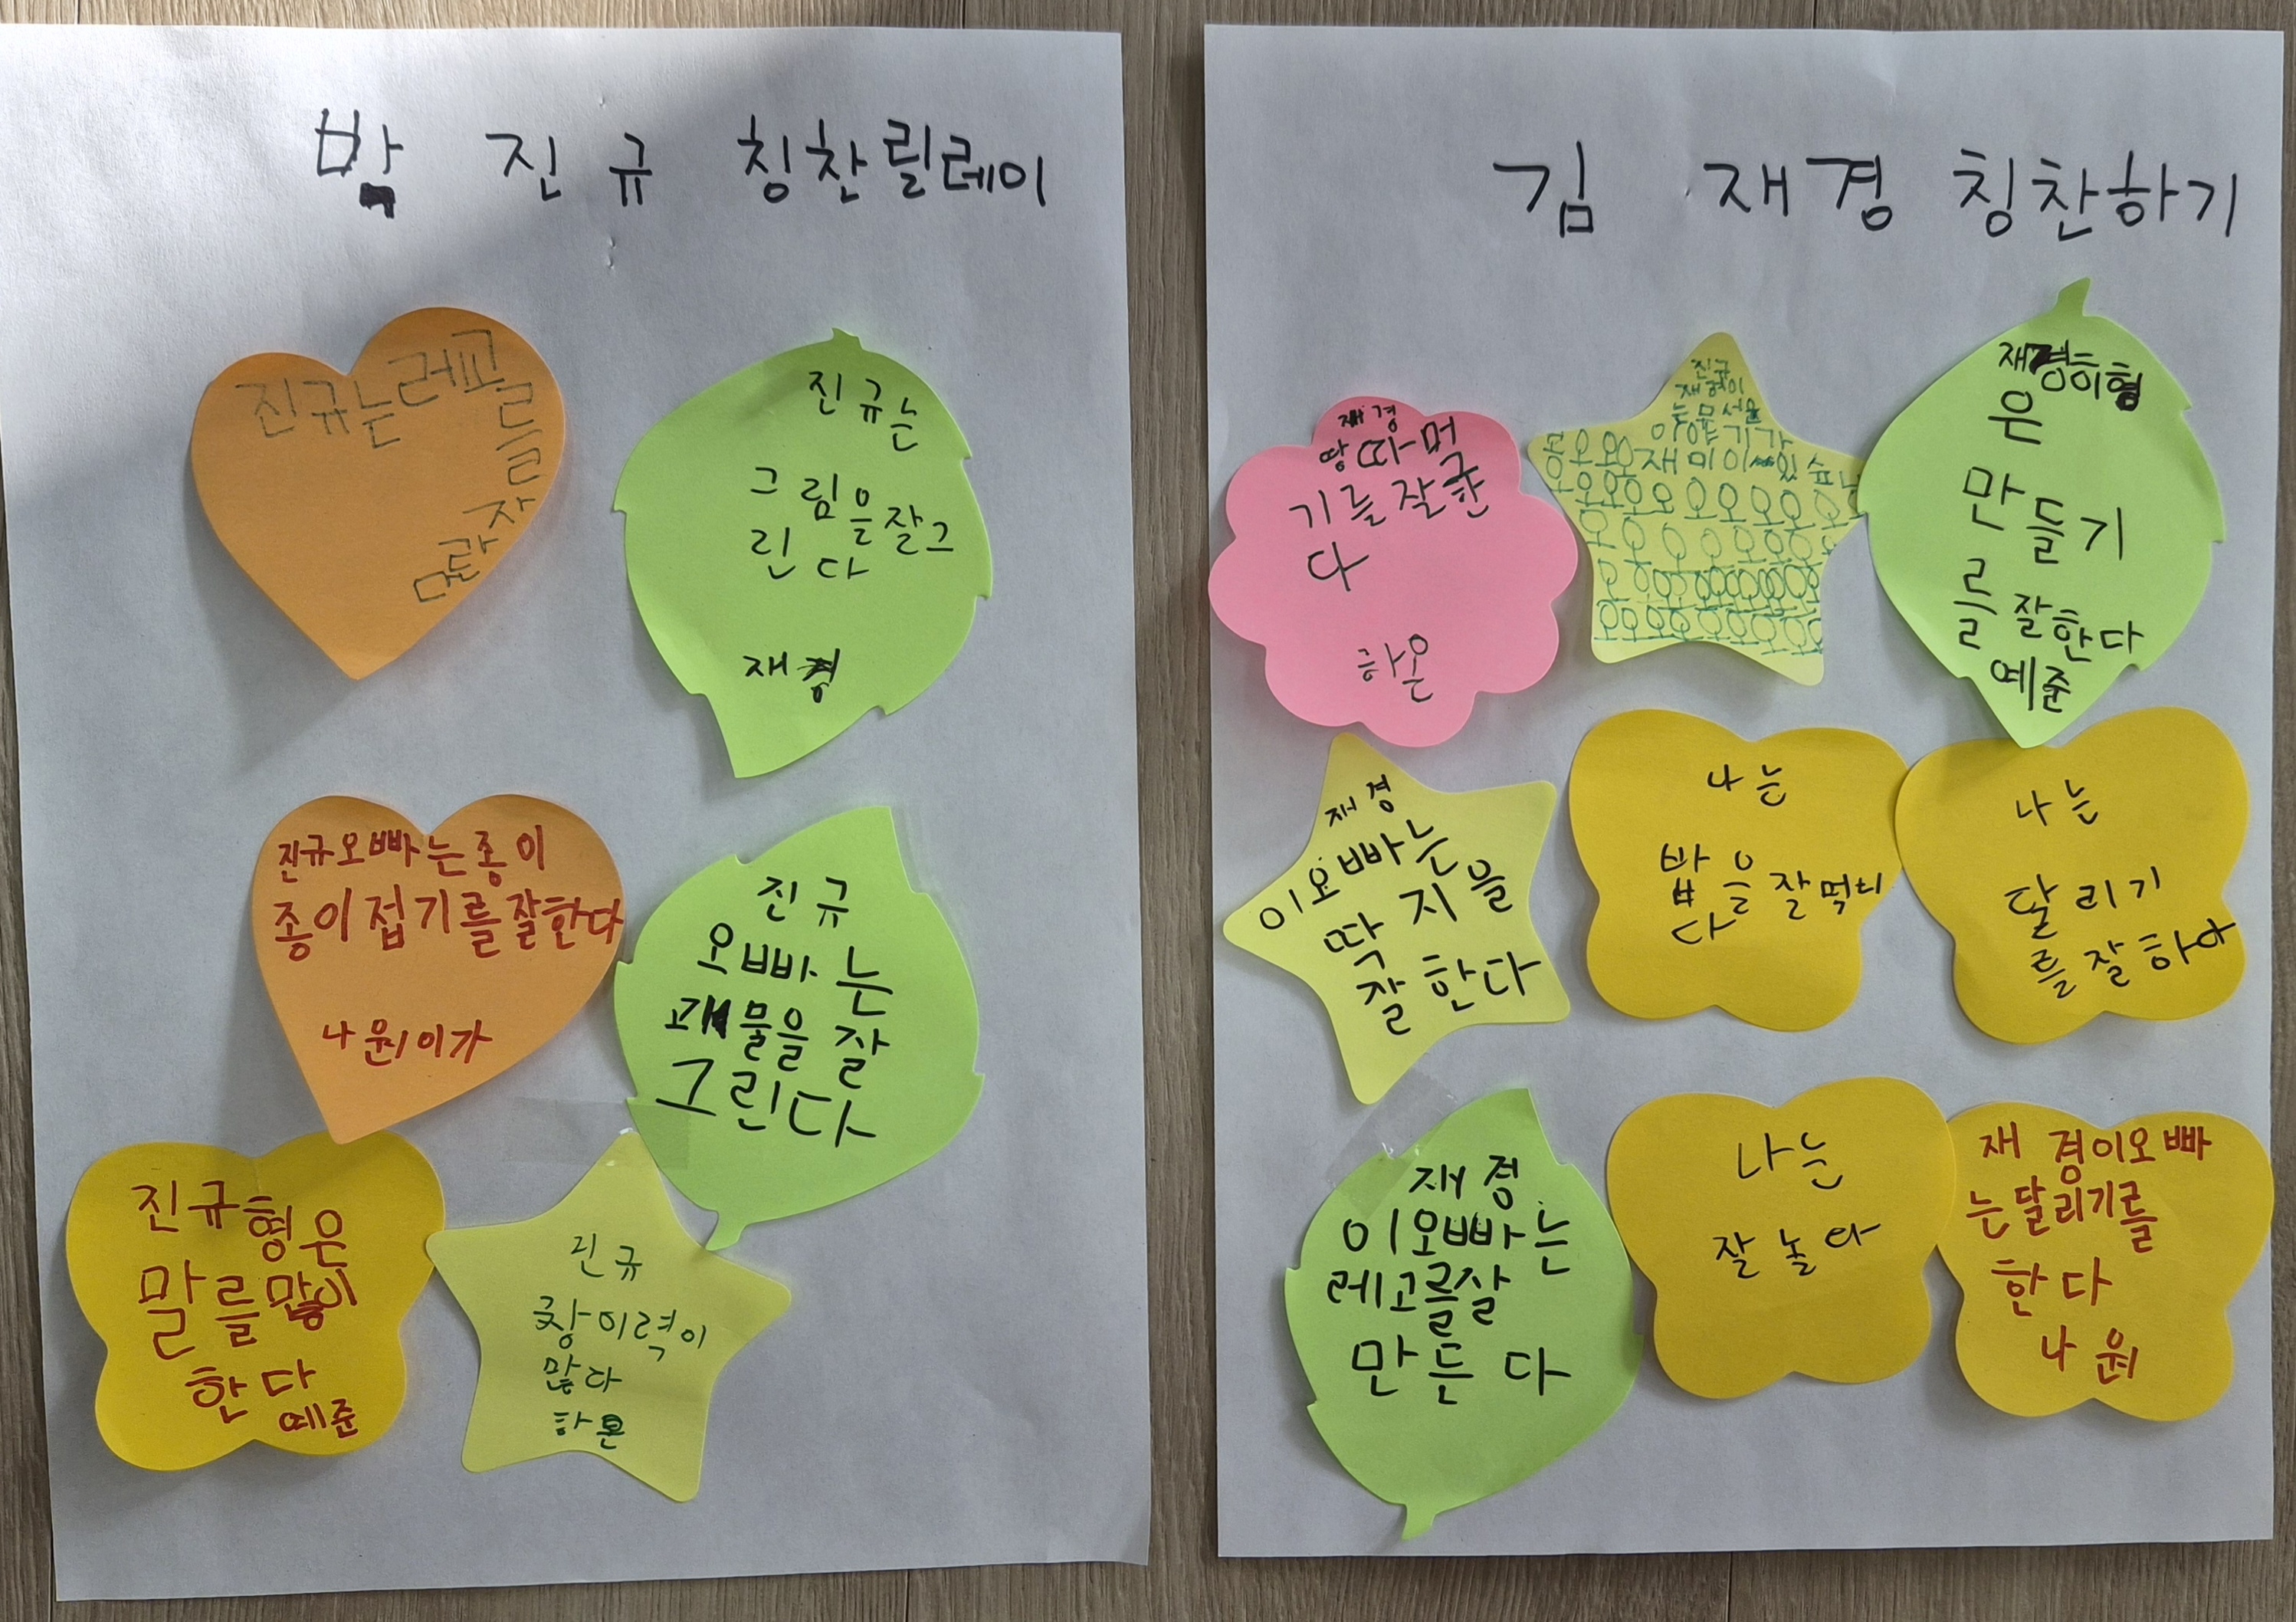 박 진규 칭찬릴레이
진규는레고를
잘
만
진규는
그림을잘그
린다
재경
진규오빠는종이
종이접기를잘한다
나원이가
진규
오빠는
괴물을 잘
그린다
진규형은
말를많이
한다
예준
진규
창이력이
많다
하온
김 재경 칭찬하기
재경
땅따먹
기를잘한
다
하온
진규
재경이
는무서운
이야기가
재미이있슾니
재경이형
은
만들기
를잘한다
예준
재경
이오빠는
딱지을
잘한다
나는
밥을잘먹는
다
나는
달리기
를잘하다
재경
이오빠는
레고를잘
만든다
나는
잘놀다
재경이오빠
는달리기를
한다
나원